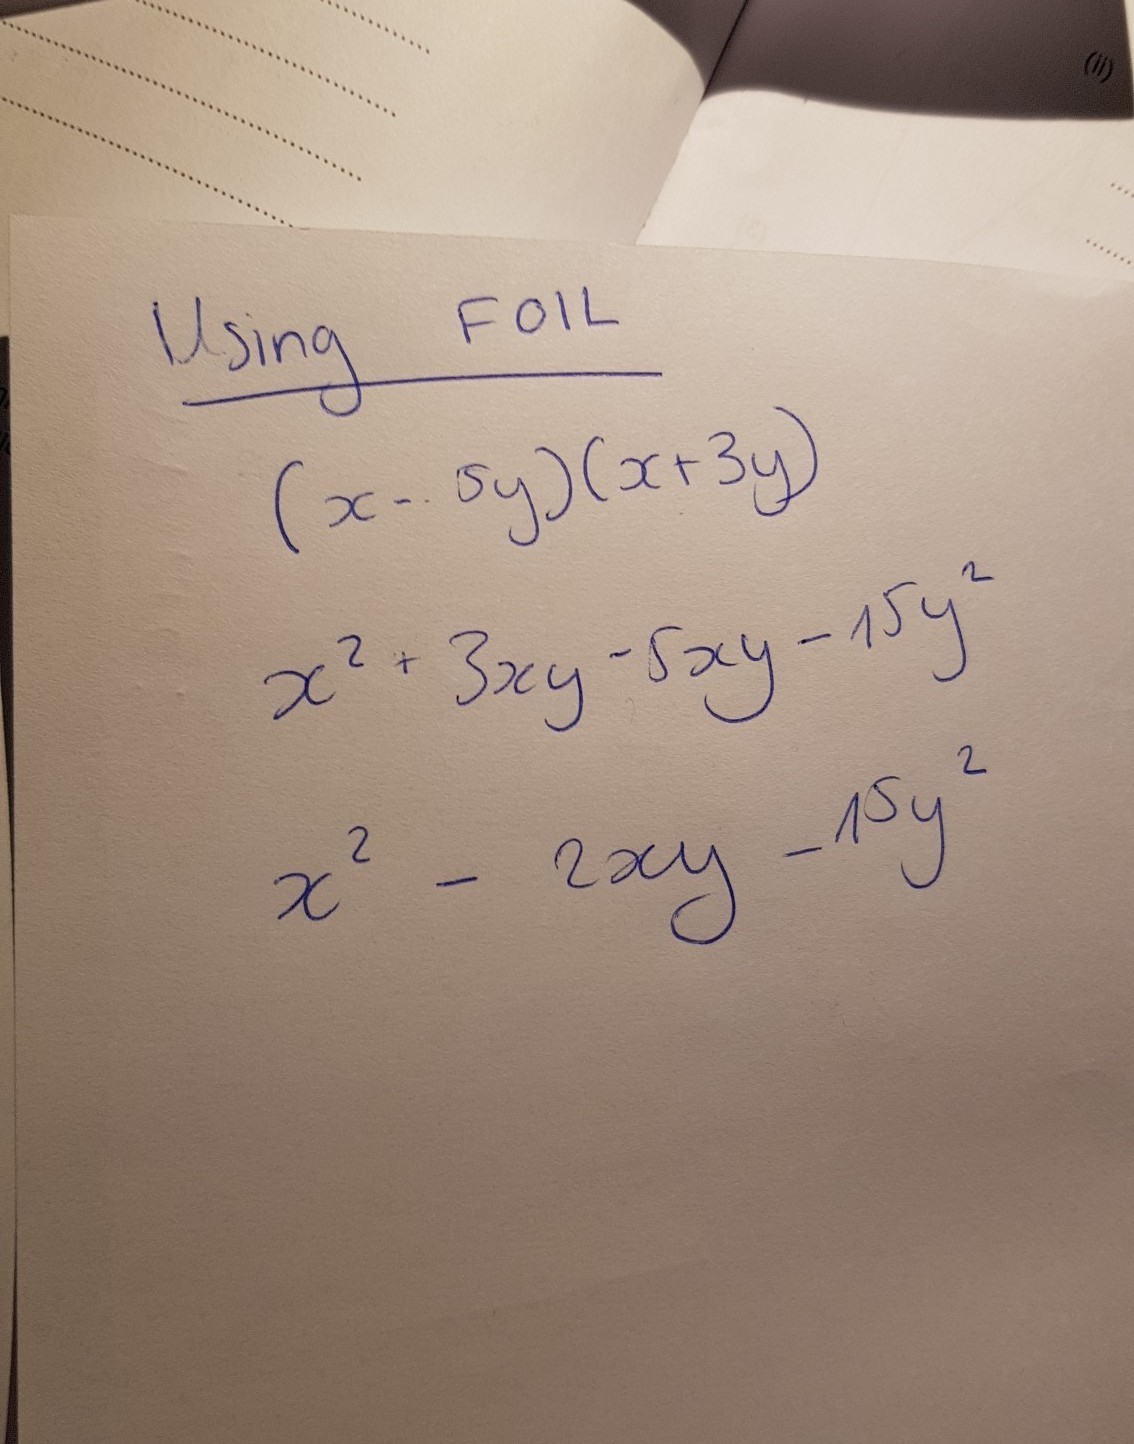 (ii)
Using FOIL
(x - 5y)(x+3y)
x² + 3xy - 5xy - 15y²
x² - 2xy - 15y²